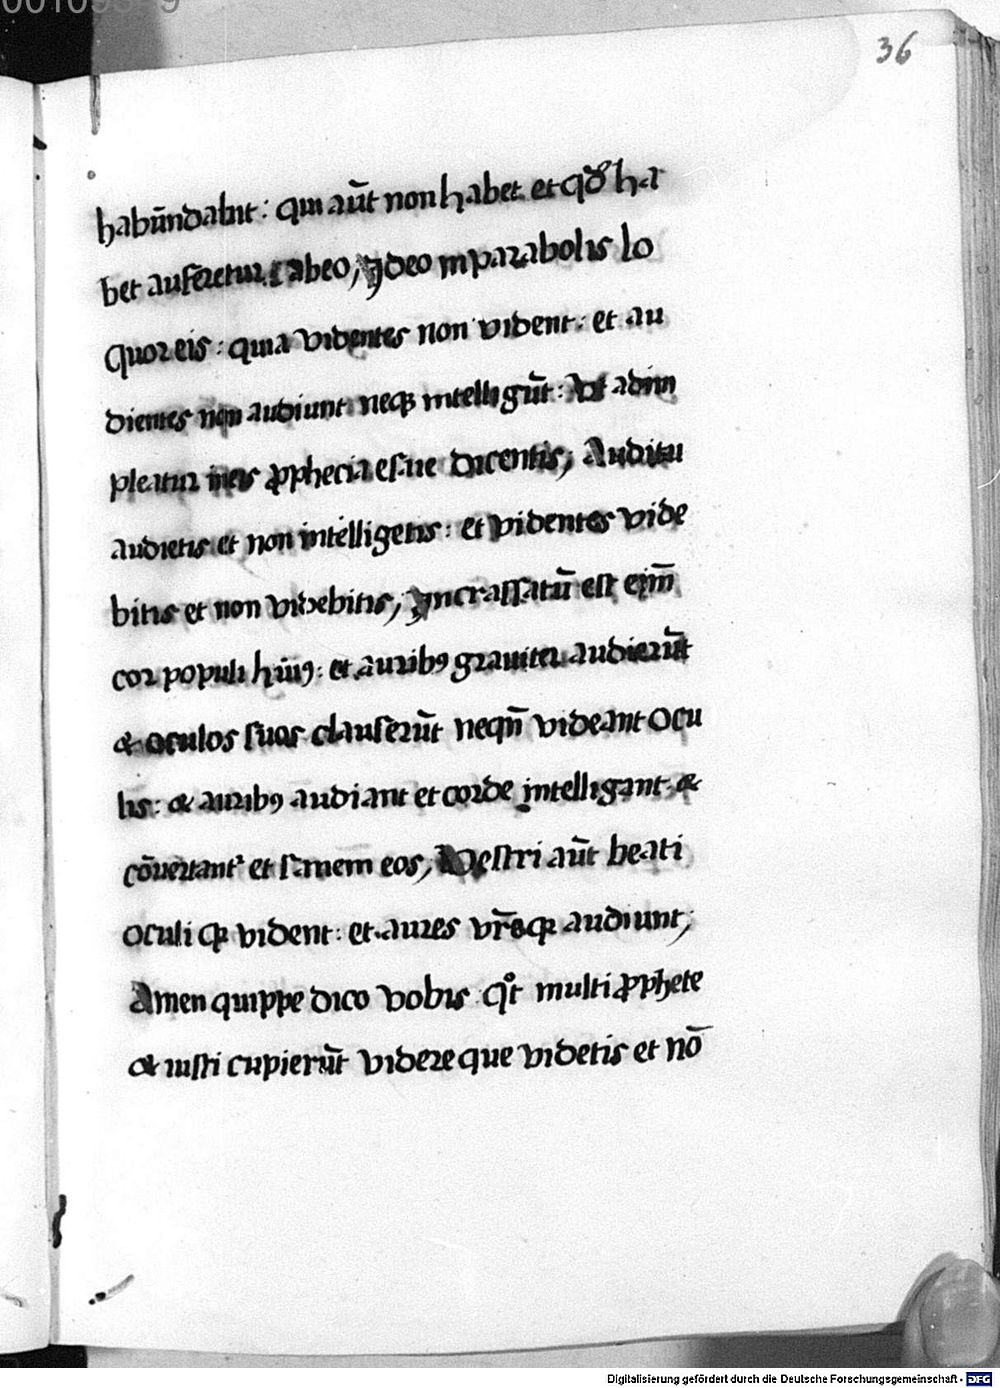 36
habūndabit: qui aūt non habet et qđ ha
bet auferetur abeo, Ideo in parabolis lo
quor eis: quia videntes non vident: et au
dientes non audiunt neqꝫ intelligūt: Vt adim
pleatur ineis ꝓphecia esaie dicentis, Auditu
audietis et non intelligetis: et videntes vide
bitis et non videbitis, Incrassatū est eīm
cor populi hūiꝰ: et auribꝰ grauiter audierūt
& oculos suos clauserūt neqn̄ videant ocu
lis: & auribꝰ audiant et corde intelligant &
cōuertant᷑ et sanem eos, Vestri aūt beati
oculi qꝫ vident: et aures vr̄e qꝫ audiunt,
Amen quippe dico vobis qͦt multi ꝓphete
& iusti cupierūt videre que videtis et nō
Digitalisierung gefördert durch die Deutsche Forschungsgemeinschaft - DFG